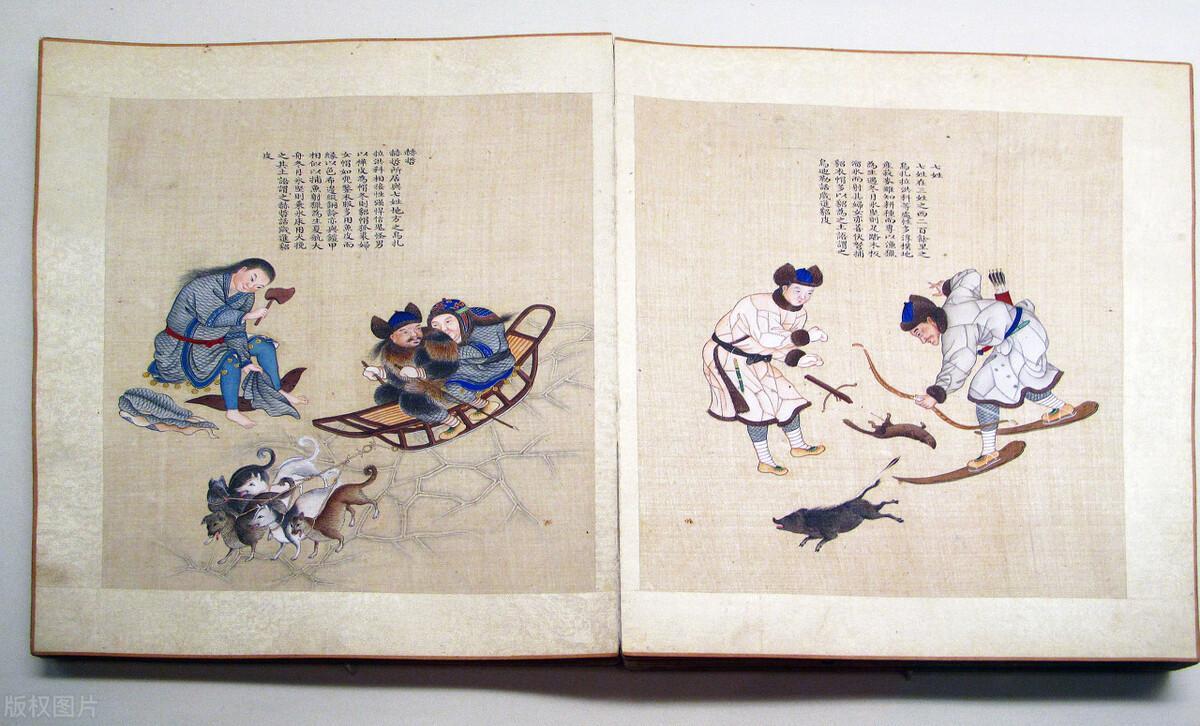 七姓
七姓在三姓之西二百餘里之
烏扎拉洪科等處性多淳樸地
産菽麥雖知耕種而專以漁獵
為生遇冬月冰堅則足踏木板
溜冰而射其婦女亦善伏弩捕
貂衣帽多以貂為之土語謂之
烏迪勒話歲進貂皮
赫哲
赫哲所居與七姓地方之烏扎
拉洪科相接性强悍信鬼怪男
以樺皮為帽冬則貂帽狐裘婦
女帽如兜鍪衣服多用魚皮而
緣以色布邊綴銅鈴亦與鎧甲
相似以捕魚射獵為生夏航大
舟冬月冰堅則乘冰床用犬挽
之其土語謂之赫哲話歲進貂
皮
版权图片